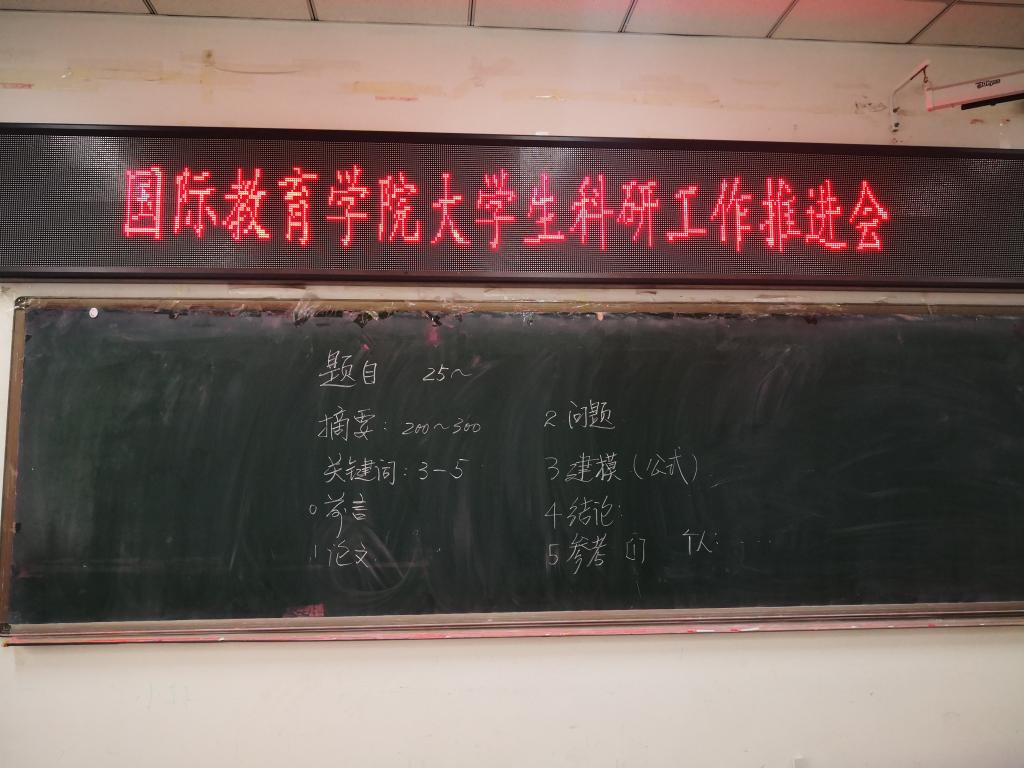 国际教育学院大学生科研工作推进会
题目 25~
摘要: 200~300
关键词: 3-5
0 前言
1 论文
2 问题
3 建模(公式)
4 结论:
5 参考 [1] 个人: ....